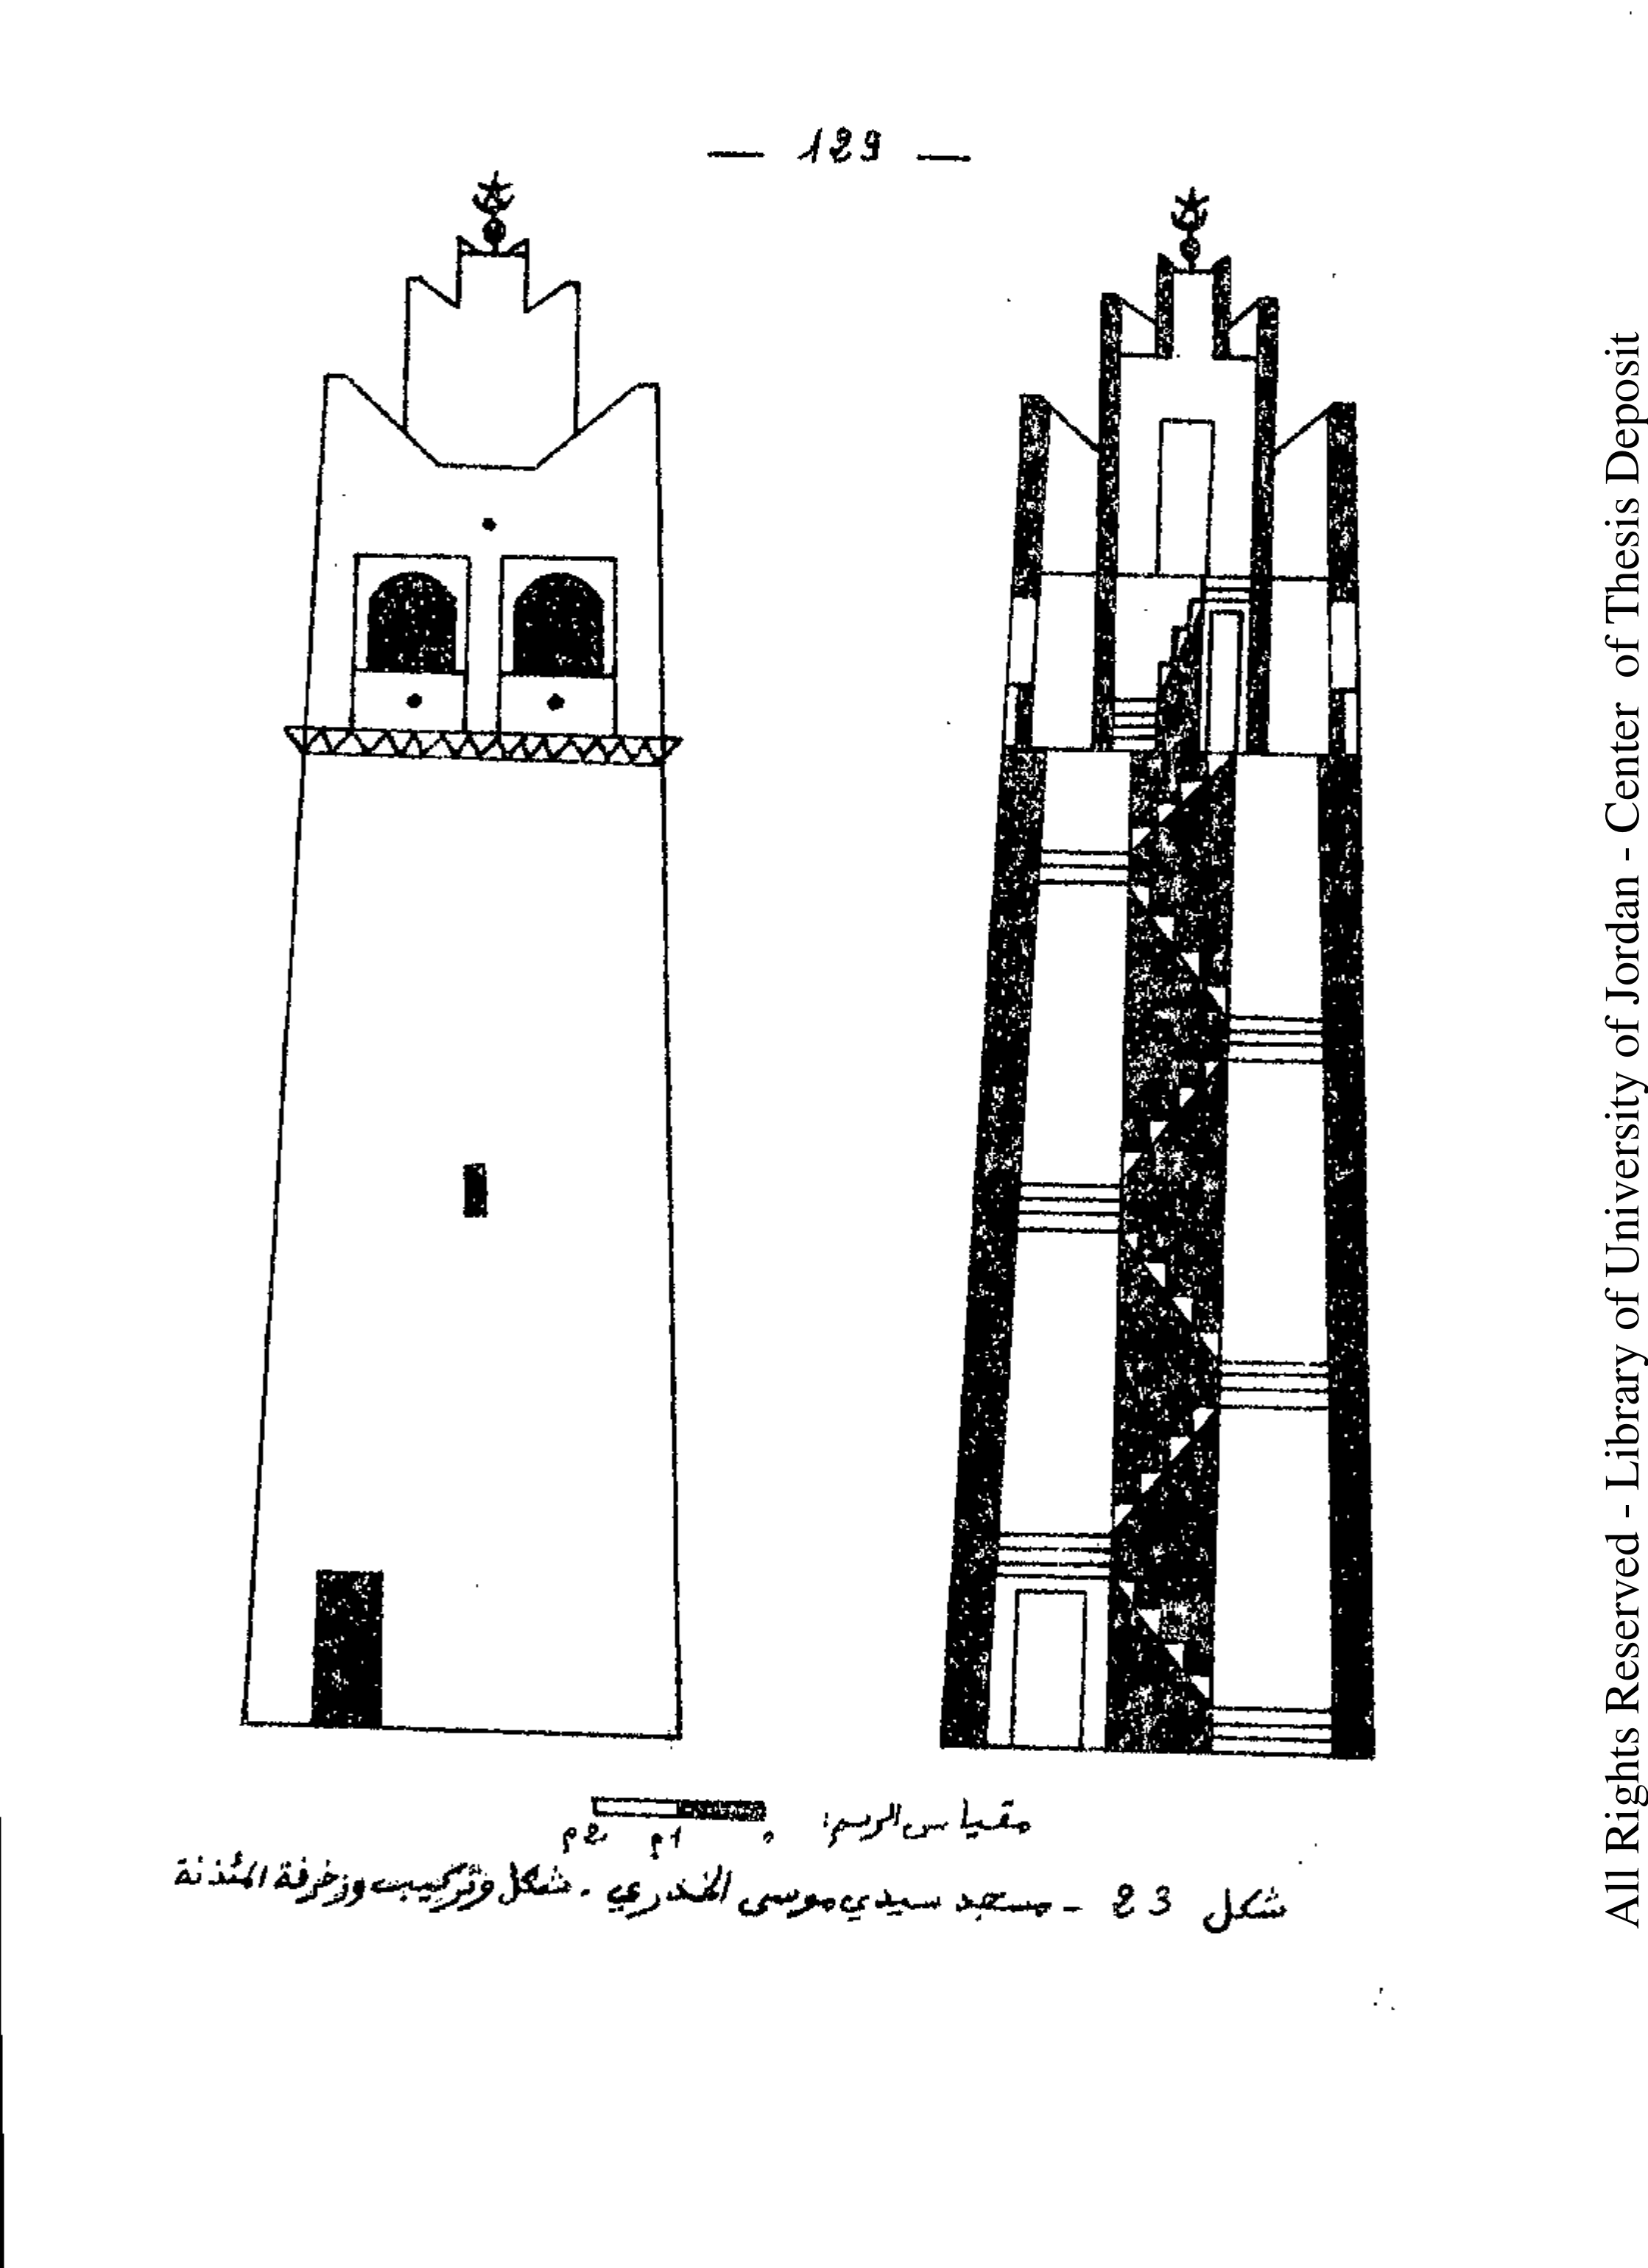 — 129 —
مقياس الرسم:
0 1م 2م
شكل 23 - مسجد سيدي موسى الخذري . شكل وتركيب وزخرفة المئذنة
All Rights Reserved - Library of University of Jordan - Center of Thesis Deposit